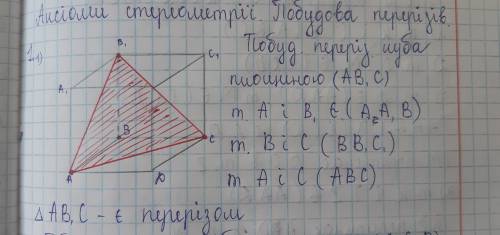 Аксіоми стереометрії. Побудова перерізів.
1.
Побуд. переріз куба
площиною (AB₁C)
т. A і B₁ ∈ (A₁A₁B)
т. B і C (BB₁C₁)
т. A і C (ABC)
B₁
C₁
A₁
B
C
A
D
△ AB₁C - є перерізом